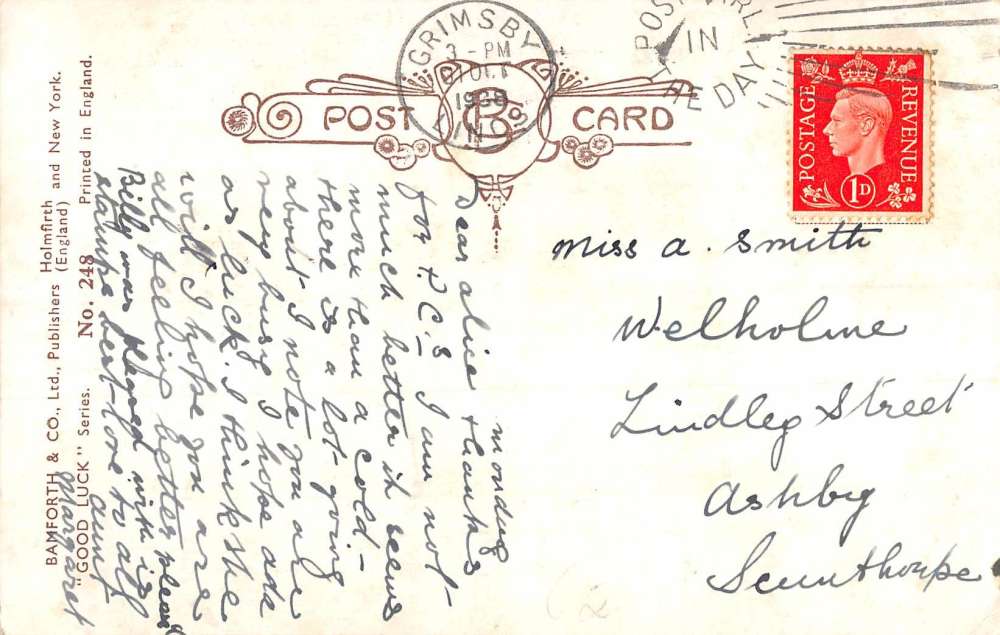 GRIMSBY
3 - PM
OCT
1938
LINCS
POST EARLY
IN
THE DAY
POST CARD
B & Co
POSTAGE
REVENUE
1D
BAMFORTH & CO., Ltd., Publishers Holmfirth and New York.
(England)
"GOOD LUCK" Series. No. 248 Printed in England.
monday
Dear alice thanks
for P.C.s I am not
much better it seems
more than a cold -
there is a lot going
about I note you are
very busy I hope ada
as luck. I think she
will I hope you are
all feeling better please
Billy was pleased with is
stamps best love to all
aunt
Margaret
Miss a. Smith
Welholme
Lindley Street
ashby
Scunthorpe